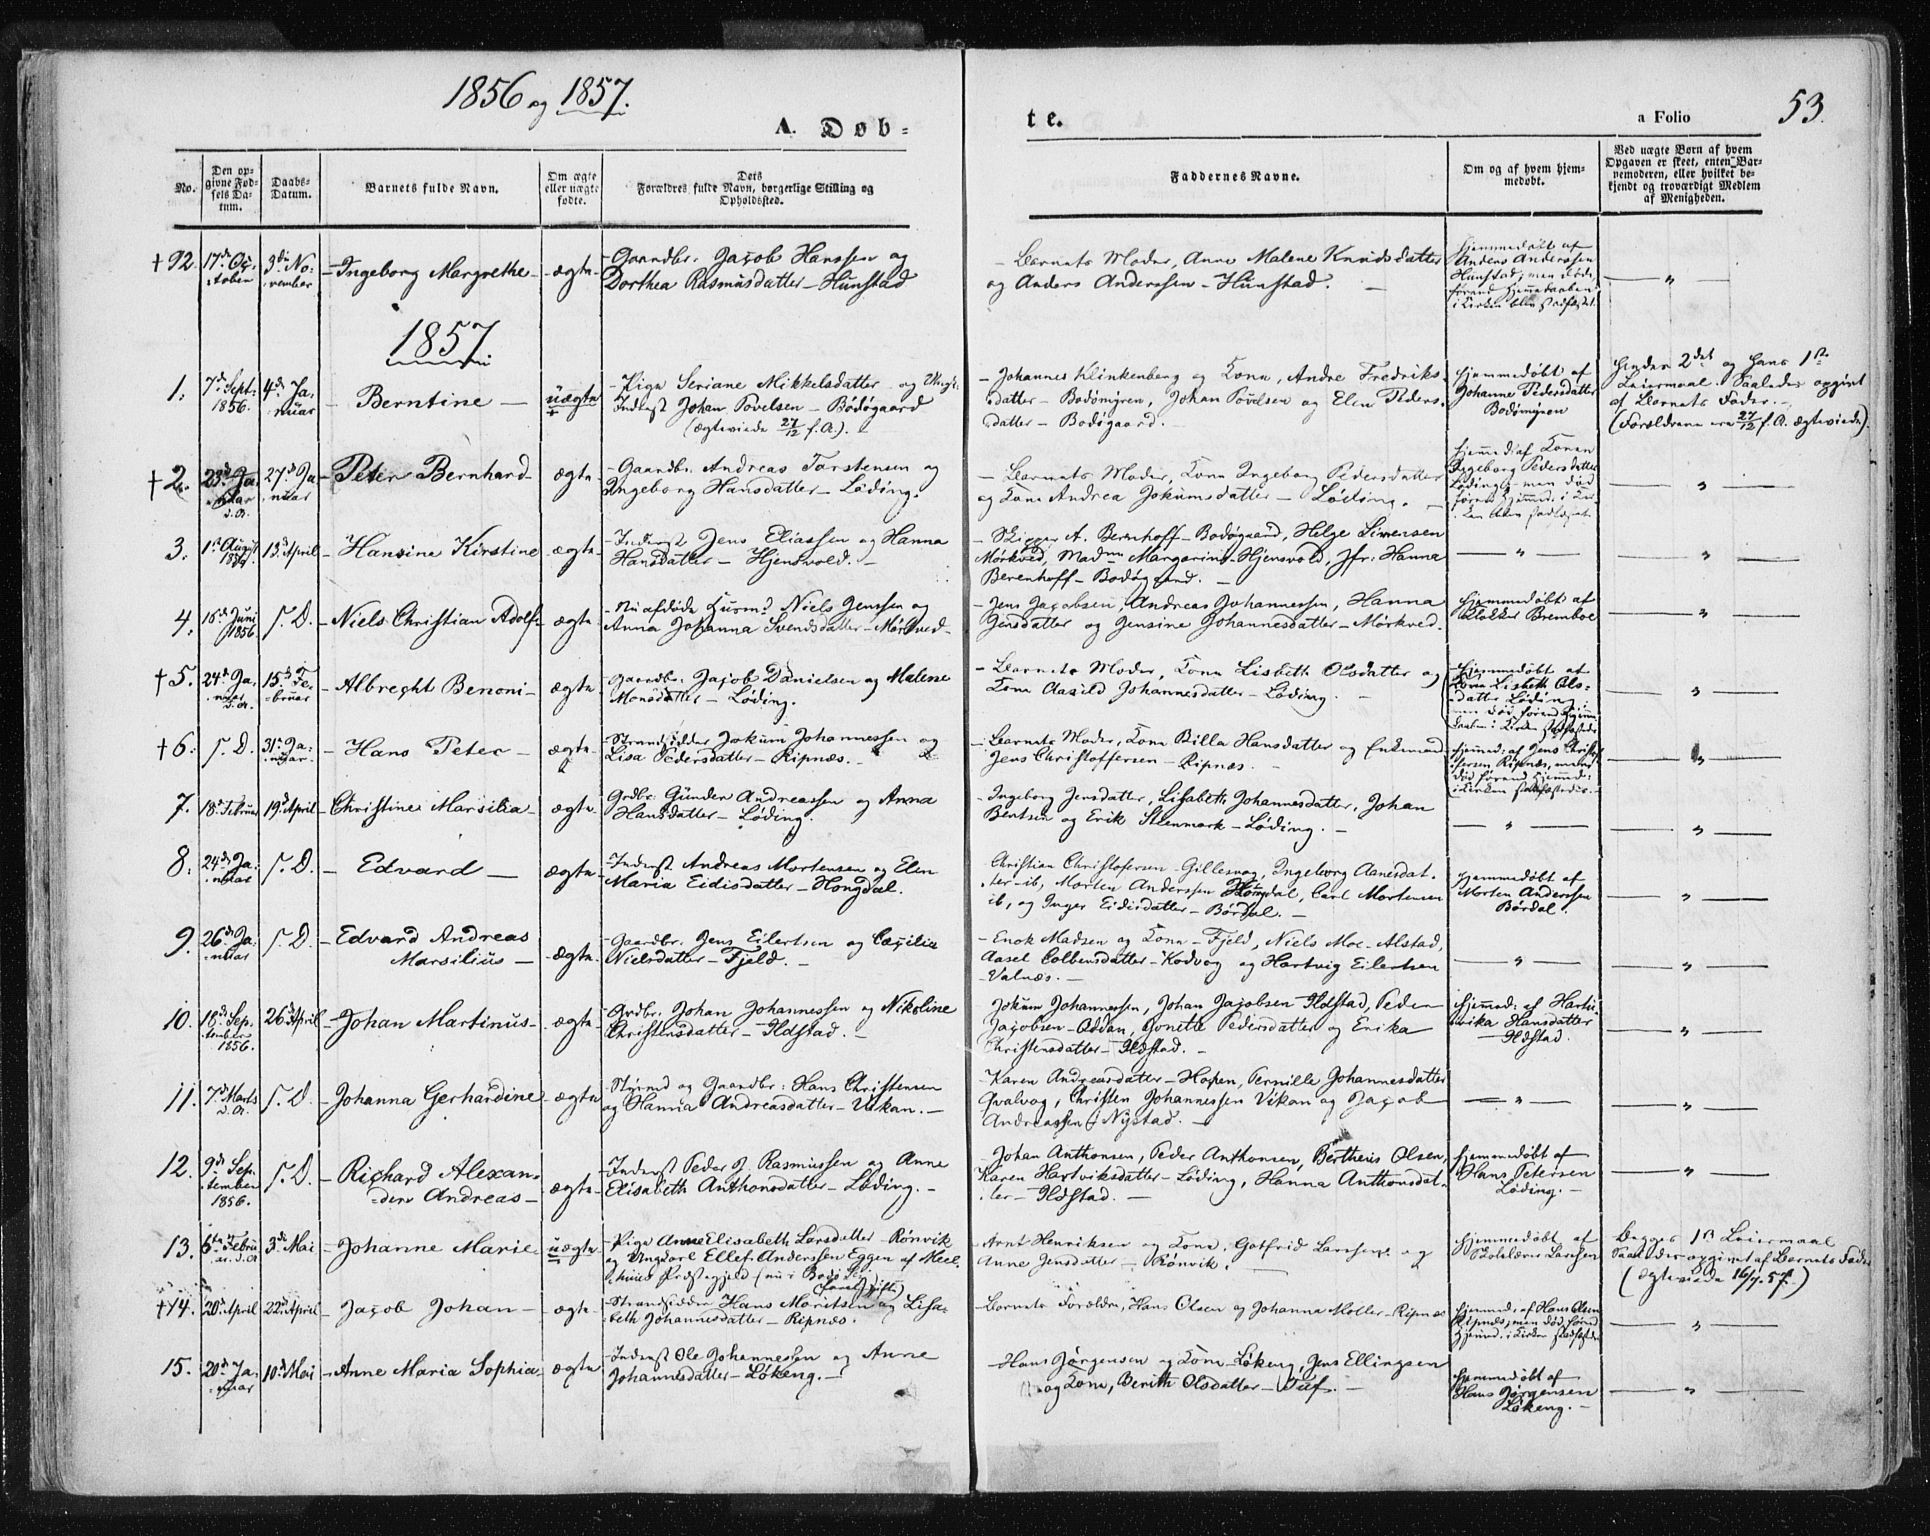 1856 og 1857.
A. Døb-
te.
a Folio
53.
No.
Den op-
givne Fød-
sels Da-
tum.
Daabs-
Datum.
Barnets fulde Navn.
Om ægte
eller uægte
fødte.
Dets
Forældres fulde Navn, borgerlige Stilling og
Opholdssted.
Faddernes Navne.
Om og af hvem hjem-
medøbt.
Ved uægte Børn af hvem
Opgaven er skeet, enten Bar-
nemoderen, eller hvilket be-
kjendt og troværdigt Medlem
af Menigheden.
†92. 17de Oc-
tober
3die No-
vember
Ingeborg Margrethe
ægte
Gaardbr. Jacob Hanssen og
Dorthea Rasmusdatter – Hunstad
Barnets Moder, Anne Malene Knudsdatter
og Anders Anderssen – Hunstad.
Hjemmedøbt af
Anders Anderssen
Hunstad, men døde
førend Hjemmedaaben
i Kirken blev stadfæstet.
1857.
1. 7de Sept:
1856.
4de Ja-
nuar
Berntine
uægte
Pige Seriane Mikkelsdatter og Ungk:
Inderst Johan Povelsen – Bodøgaard
(ægteviede 27/12 f. A.).
Johannes Klinkenberg og Kone, Andre Fredriks-
datter – Bodømyren, Johan Povelsen og Elen Peders-
datter – Bodøgaard.
Hjemmedøbt af
Johanne Pedersdatter
Bodømyren
Hendes 2det og hans 1ste
Leiermaal. Saaledes opgivet
af Barnets Fader.
(Forældrene ere 27/12 f. A. ægteviede).
†2. 23de Ja-
nuar
d. A.
27de Ja-
nuar
Peter Bernhard
ægte
Gaardbr. Andreas Torstensen og
Ingeborg Hansdatter – Løding.
Barnets Moder, Kone Ingeborg Pedersdatter
og Kone Andrea Jokumsdatter – Løding.
Hjemmed. af Konen
Ingeborg Pedersdatter
Løding – men død
førend Hjemmed. i Kir-
ken blev stadfæstet.
3. 1ste August
1856.
13de April
Hansine Kirstine
ægte
Inderst Jens Eliassen og Hanna
Hansdatter – Hjernsvold.
Skipper A. Bernhoff – Bodøgaard, Helge Simensen
Mørkved, Madm Margarine Hjensvold, Jfr: Hanna
Berenhoff – Bodøgaard.
4. 16de Juni
1856.
S. D.
Niels Christian Adolf
ægte
Nu afdøde Husmd Niels Jenssen og
Anna Johanna Svendsdatter – Mørkved
Jens Jacobsen, Andreas Johannessen, Hanna
Jensdatter og Jensine Johannesdatter – Mørkved.
Hjemmedøbt af
Klokker Bremboe
†5. 24de Ja-
nuar
d. A.
15de Fe-
bruar
Albrecht Benoni
ægte
Gaardbr. Jacob Danielsen og Malene
Monsdatter – Løding.
Barnets Moder, Kone Lisbeth Olsdatter og
Kone Aasild Johannesdatter – Løding.
Hjemmedøbt af
Kone Lisbeth Ols-
datter Løding,
men død førend Hjemme-
daaben i Kirken stadfæstedes
†6. S. D.
31te Ja-
nuar
Hans Peter
ægte
Strandsidder Jokum Johannessen og
Lisa Pedersdatter – Ripnæs.
Barnets Moder, Kone Billa Hansdatter og Enkemand
Jens Christoffersen – Ripnæs.
Hjemmed: af Jens Christof-
fersen Ripnæs, men
død førend Hjemmed:
i Kirken stadfæstedes.
7. 18de Februar
19de April
Christine Marselia
ægte
Grdbr. Gunder Andreassen og Anna
Hansdatter – Løding.
Ingeborg Jensdatter, Lisabeth Johannesdatter, Johan
Bentsen og Erik Steenmark – Løding.
8. 24de Ja-
nuar
S. D.
Edvard
ægte
Inderst Andreas Mortensen og Elen
Maria Eidisdatter – Hongdal.
Christian Christofersen – Gillesvog, Ingeborg Aanesdat-
ter – ib, Morten Anderssen Hongdal, Carl Mortensen
ib, og Inger Eidisdatter – Børdal.
Hjemmedøbt af
Morten Anderssen
Børdal.
9. 26de Ja-
nuar
S. D.
Edvard Andreas
Marsilius
ægte
Gaardbr. Jens Eilertsen og Cecilie
Nielsdatter – Fjeld.
Enok Madsen og Kone – Fjeld, Niels Moe – Alstad,
Aasel Colbensdatter – Kodvog og Hartvig Eilertsen
Valnæs.
10. 18de Sep-
tember
1856.
26de April
Johan Martinus
ægte
Grdbr. Johan Johannessen og Nikoline
Christensdatter – Ildstad.
Jokum Johannessen, Johan Jacobsen Ildstad, Peder
Jacobsen – Oddan, Jonette Pedersdatter og Erika
Christensdatter – Ildstad.
Hjemmed: af Hart-
vika Hansdatter
Ildstad.
11. 7de Marts
d. A.
S. D.
Johanna Gerhardine
ægte
Styrmd og Gaardbr: Hans Christensen
og Hanna Andreasdatter – Vikan.
Karen Andreasdatter – Hopen, Pernille Johannesdatter
Qvalvog, Christen Johannessen Vikan og Jacob
Andreassen i Nystad.
12. 9de Sep-
tember
1856.
S. D.
Richard Alexan-
der Andreas
ægte
Inderst Peder J. Rasmussen og Anne
Elisabeth Anthonsdatter – Løding.
Johan Anthonsen, Peder Anthonsen, Bertheus Olsen,
Karen Hartviksdatter – Løding, Hanna Anthonsdat-
ter – Ildstad.
Hjemmedøbt af
Hans Petersen
Løding.
13. 6te Febru-
ar. d. A.
3die Mai
Johanne Marie
uægte
Pige Anne Elisabeth Larsdatter Rønvik
og Ungkarl Ellef Anderssen Eggen af Meel-
huus Præstegjeld (nu i Bodø By)
Arnt Henriksen og Kone, Gotfrid Larssen og
Anne Jensdatter – Rønvik.
Hjemmedøbt af
Skolelærer Larssen
Begges 1ste Leiermaal
Saaledes opgivet af Barnets Fader
(Ægteviede 16/7. 57.)
†14. 20de April
22de April
Jacob Johan
ægte
Strandsidder Hans Moritsen og Lisa-
beth Johannesdatter – Ripnæs.
Barnets Forældre, Hans Olsen og Johanna Møller – Ripnæs
Hjemmed: af Hans Olsen
Ripnæs, men død førend
Hjemmd. i Kirken stadfæstedes
15. 20de Ja-
nuar
10de Mai
Anne Maria Sophia
ægte
Inderst Ole Johannessen og Anne
Johannesdatter – Løkeng.
Hans Jørgensen og Kone – Løkeng, Jens Ellingsen
og Kone, Berith Olsdatter – Tuf.
Hjemmedøbt af
Hans Jørgensen
Løkeng.